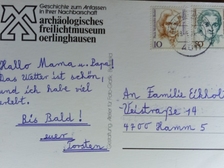 Geschichte zum Anfassen
in Ihrer Nachbarschaft
archäologisches
freilichtmuseum
oerlinghausen
Hallo Mama u. Papa!
Das Wetter ist schön,
und ich habe viel
erlebt.
Bis Bald!
euer
Torsten
10
An Familie Eckholt
straße 19
4700 Hamm 5